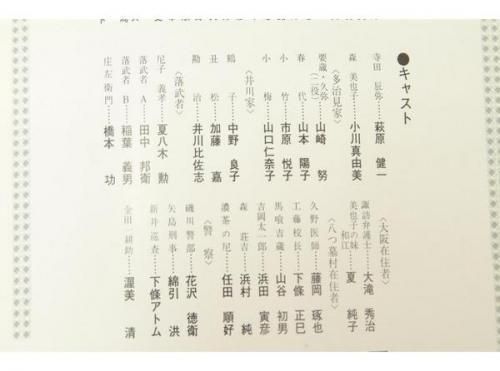 ●キャスト
寺田 辰弥 萩原 健一
森 美也子 小川真由美
〈多治見家〉
要蔵・久弥(二役) 山崎 努
春代 山本 陽子
小竹 市原 悦子
小梅 山口仁奈子
〈井川家〉
鶴子 中野 良子
丑松 加藤 嘉
勘治 井川比佐志
〈落武者〉
尼子 義孝 夏八木 勲
落武者 A 田中 邦衛
落武者 B 稲葉 義男
庄左衛門 橋本 功
〈大阪在住者〉
諏訪弁護士 大滝 秀治
美也子の妹 和江 夏 純子
〈八つ墓村在住者〉
久野医師 藤岡 琢也
工藤校長 下條 正巳
馬喰吉蔵 山谷 初男
吉岡太一郎 浜田 寅彦
森 荘吉 浜村 純
濃茶の尼 任田 順好
〈警察〉
磯川警部 花沢 徳衛
矢島刑事 綿引 洪
新井巡査 下條アトム
金田一耕助 渥美 清